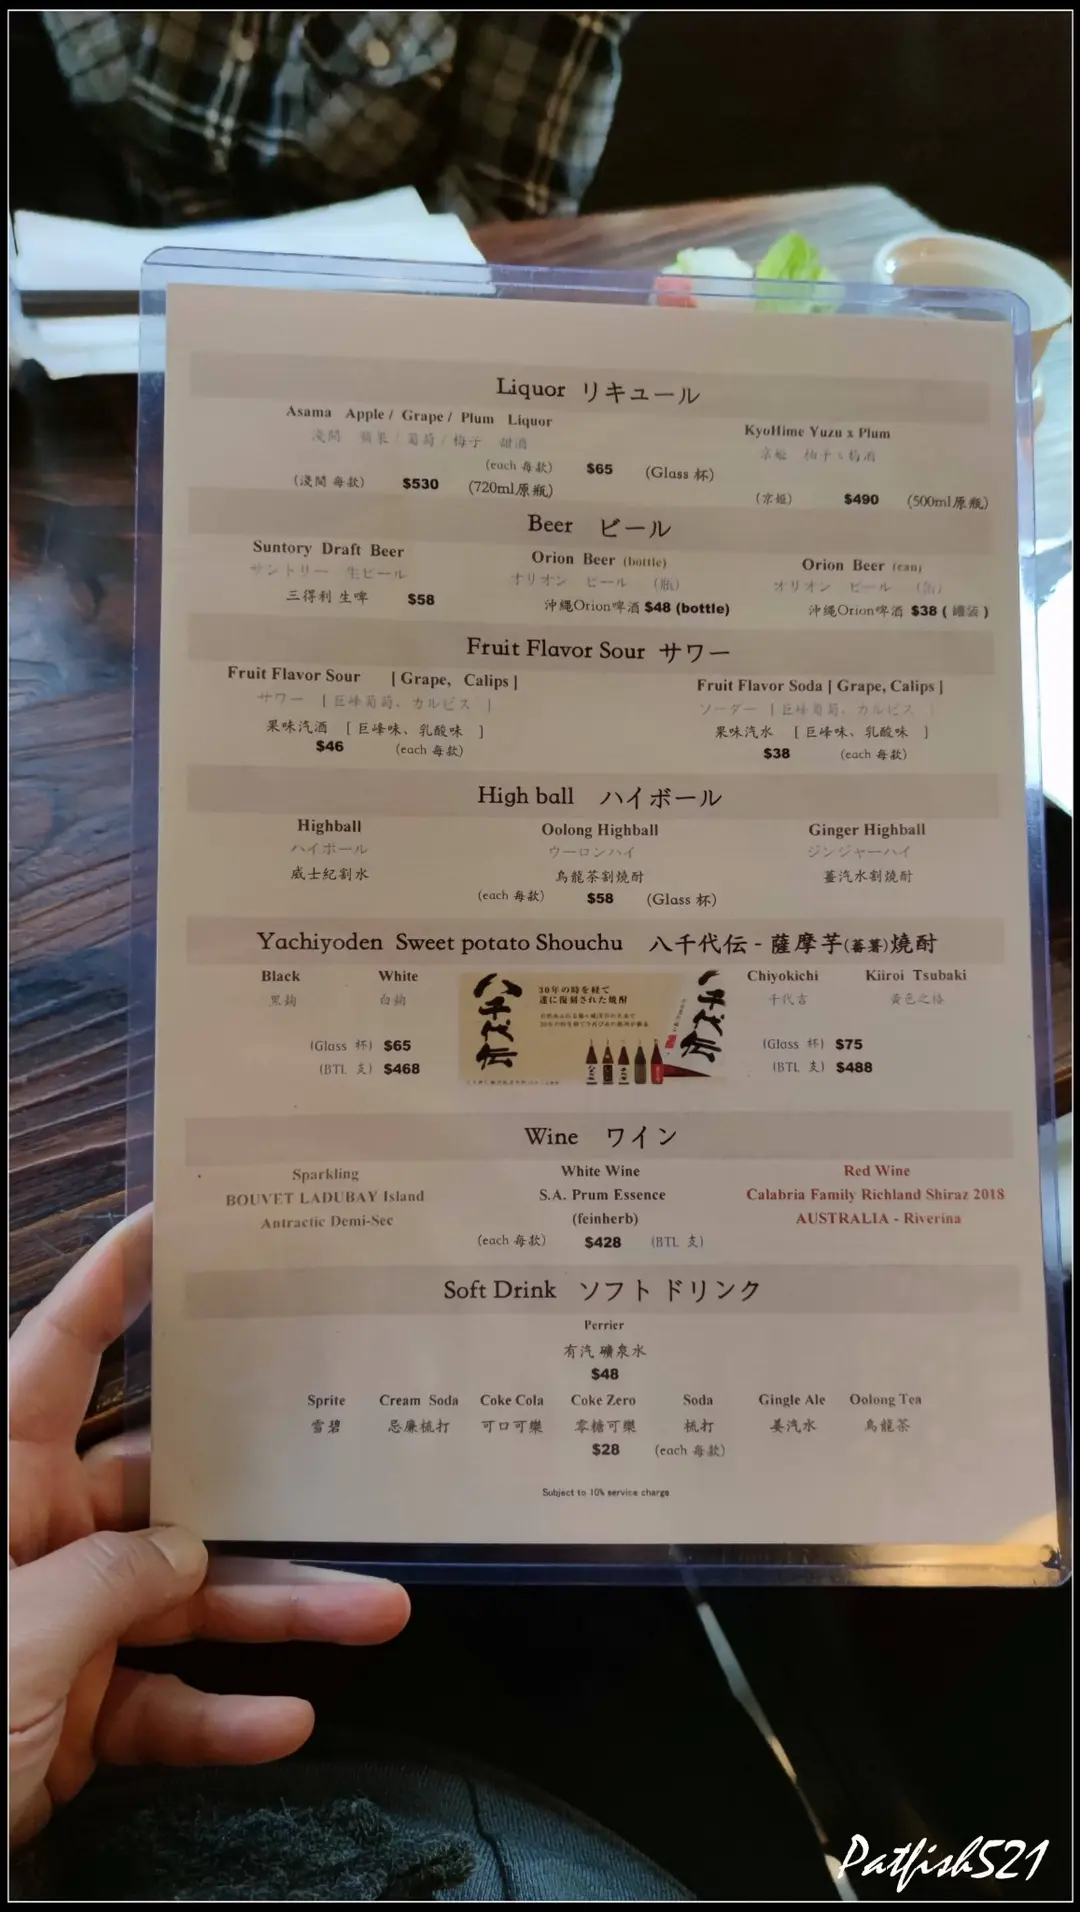 Liquor リキュール
Asama Apple / Grape / Plum Liquor
浅間 蘋果 / 葡萄 / 梅子 甜酒
(each 每款) $65 (Glass 杯)
(淺間 每款) $530 (720ml原瓶)
KyoHime Yuzu x Plum
京姫 柚子x梅酒
(京姫) $490 (500ml原瓶)
Beer ビール
Suntory Draft Beer
サントリー 生ビール
三得利 生啤 $58
Orion Beer (bottle)
オリオン ビール (瓶)
沖縄Orion啤酒 $48 (bottle)
Orion Beer (can)
オリオン ビール (缶)
沖縄Orion啤酒 $38 ( 罐装 )
Fruit Flavor Sour サワー
Fruit Flavor Sour [ Grape, Calips ]
サワー [ 巨峰葡萄、カルピス ]
果味汽酒 [ 巨峰味、乳酸味 ]
$46 (each 每款)
Fruit Flavor Soda [ Grape, Calips ]
ソーダー [ 巨峰葡萄、カルピス ]
果味汽水 [ 巨峰味、乳酸味 ]
$38 (each 每款)
High ball ハイボール
Highball Oolong Highball Ginger Highball
ハイボール ウーロンハイ ジンジャーハイ
威士紀割水 烏龍茶割焼酎 薑汽水割焼酎
(each 每款) $58 (Glass 杯)
Yachiyoden Sweet potato Shouchu 八千代伝 - 薩摩芋(蕃薯)燒酎
Black White
黒麹 白麹
(Glass 杯) $65
(BTL 支) $468
八千代伝
30年の時を経て
遂に復刻された焼酎
八千代伝
Chiyokichi Kiiroi Tsubaki
千代吉 黃色之椿
(Glass 杯) $75
(BTL 支) $488
Wine ワイン
Sparkling
BOUVET LADUBAY Island
Antractic Demi-Sec
White Wine
S.A. Prum Essence
(feinherb)
Red Wine
Calabria Family Richland Shiraz 2018
AUSTRALIA - Riverina
(each 每款) $428 (BTL 支)
Soft Drink ソフト ドリンク
Perrier
有汽 礦泉水
$48
Sprite Cream Soda Coke Cola Coke Zero Soda Gingle Ale Oolong Tea
雪碧 忌廉梳打 可口可樂 零糖可樂 梳打 姜汽水 烏龍茶
$28 (each 每款)
Subject to 10% service charge
Patfish521